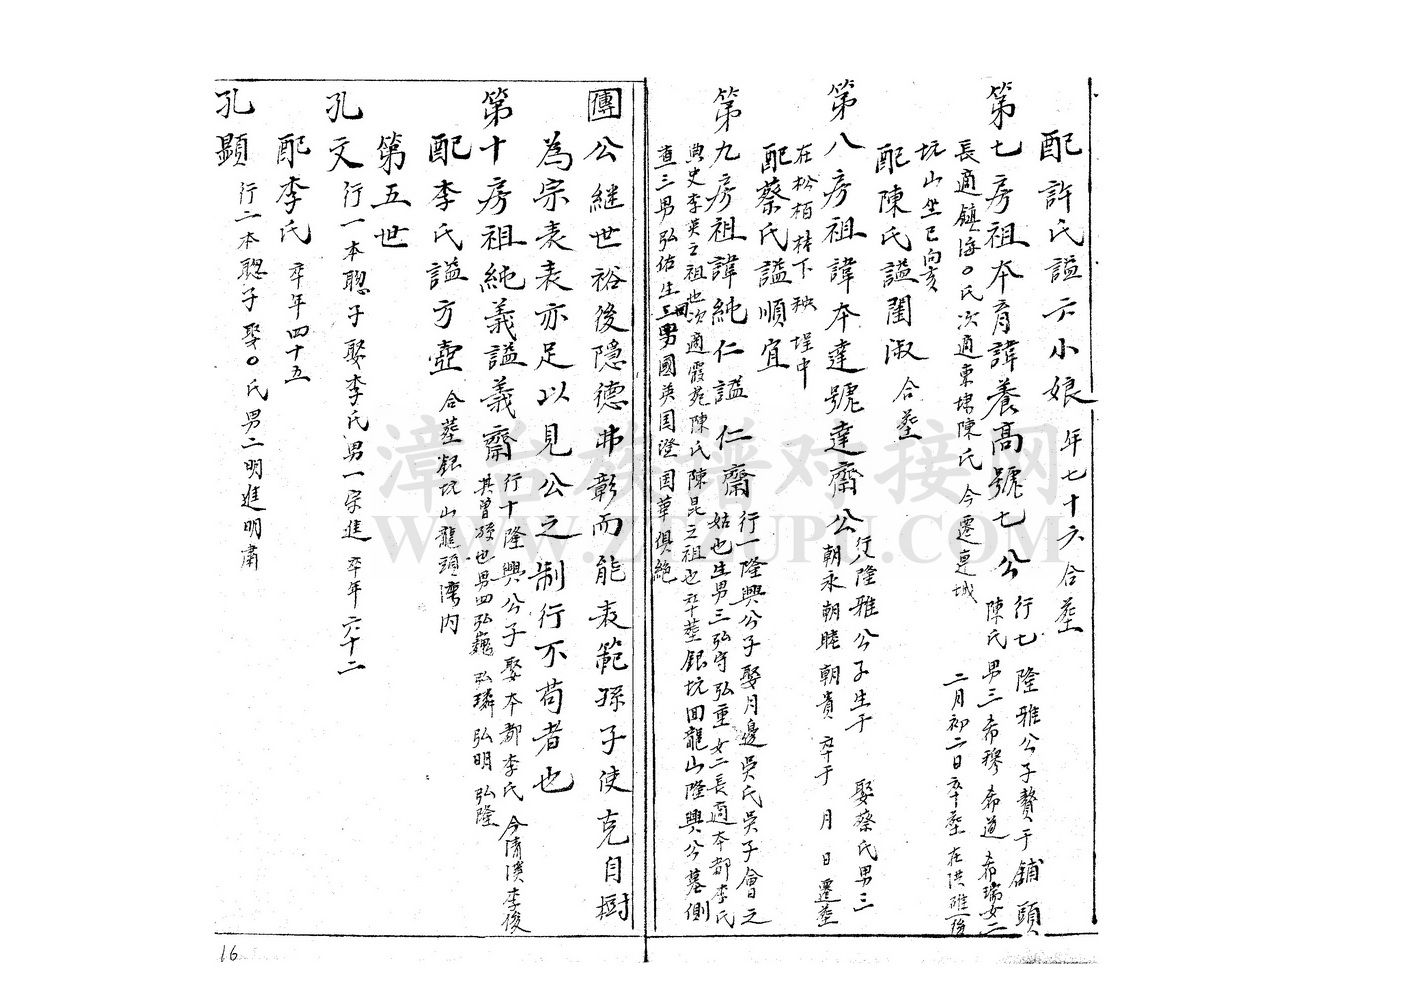 配許氏謚六小娘 年七十六合塟
第七房祖本育諱養高號七公 行七 隆雅公子贅于鋪頭
陳氏男三希穆希道希瑞女二
長適鎮海〇氏次適東埭陳氏今遷連城
二月初二日卒塟在洪
坑山坐巳向亥
配陳氏謚閨淑 合塟
第八房祖諱本達號達齋公 行八隆雅公子生于 娶蔡氏男三
朝永朝睦朝貴 卒于 月 日遷塟
在松柏林下 秧埕中
配蔡氏謚順宜
第九房祖諱純仁謚仁齋 行一隆興公子娶月邊吳氏吳子會之
姑也生男三弘守弘重女二長適本都李氏
典史李英之祖也次適霞苑陳氏陳昆之祖也卒塟銀坑回龍山隆興公墓側
查三男弘佑生三男國英国澄国華俱絶
傳 公継世裕後隱德弗彰而能表範孫子使克自樹
為宗表表亦足以見公之制行不苟者也
第十房祖純義謚義齋 行十隆興公子娶本都李氏今清溪李俊
其曾孫也男四弘巍弘璘弘明弘隆
配李氏謚方壼 合塟銀坑山龍頭湾内
第五世
孔文 行一本聰子娶李氏男一宗進 卒年六十二
配李氏 卒年四十五
孔顯 行二本聰子娶〇氏男二明進明肅
16
漳台族谱对接网
WWW.ZZZUPU.COM